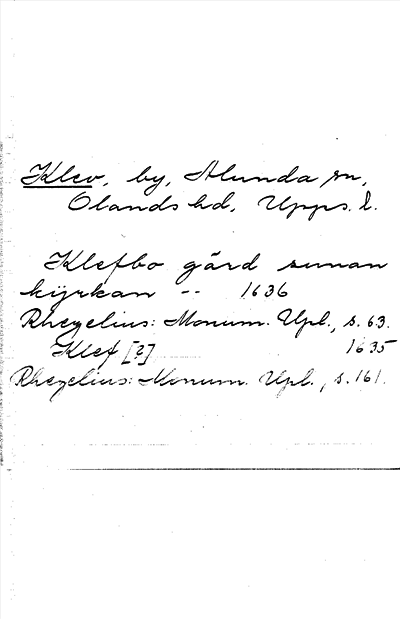 Klev, by, Alunda sn,
Olands hd, Upps. l.
Klefbo gård sunan
kijrkan -- 1636
Rhezelius: Monum. Upl., s. 63.
Klef [?] 1635
Rhezelius: Monum. Upl., s. 161.